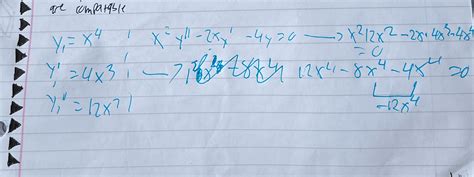 are comparable
y₁ = x⁴ | x² y'' - 2xy' - 4y = 0 → x² 12x² - 2x · 4x³ - 4x⁴
= 0
y₁' = 4x³ | → 12x⁴ - 8x⁴ - 4x⁴ = 0
y₁'' = 12x² | -12x⁴